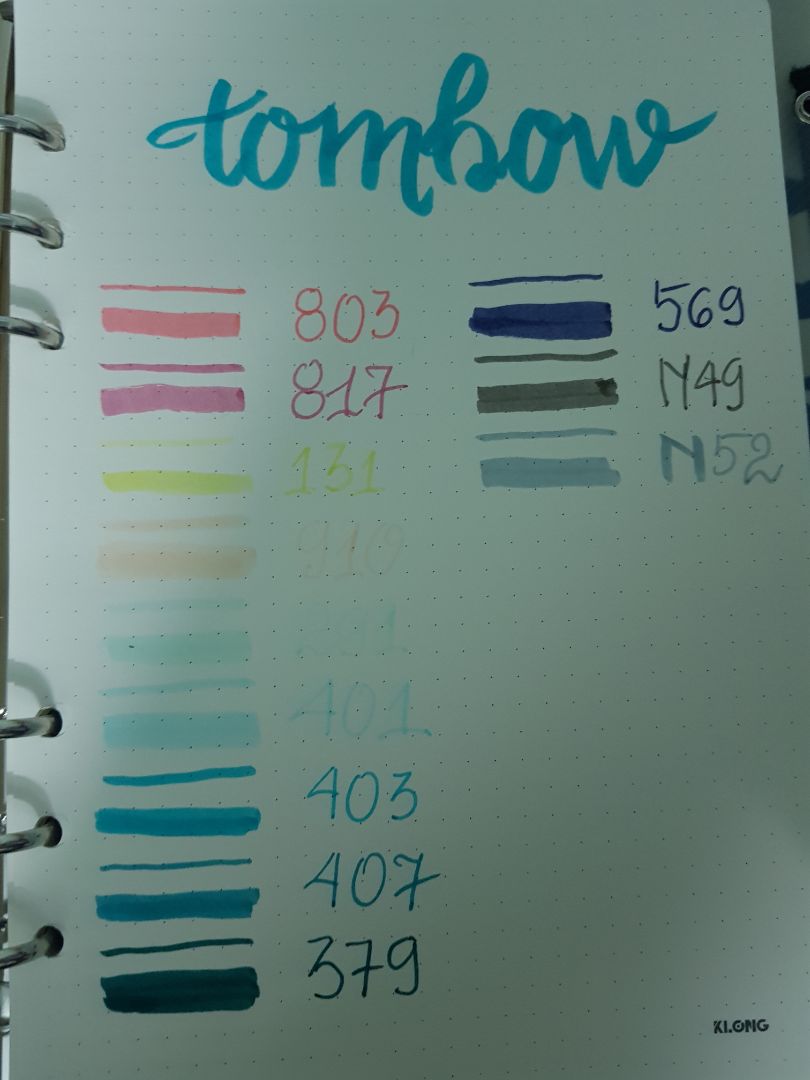 tombow
803
817
131
910
291
401
403
407
379
569
N49
N52
KLONG